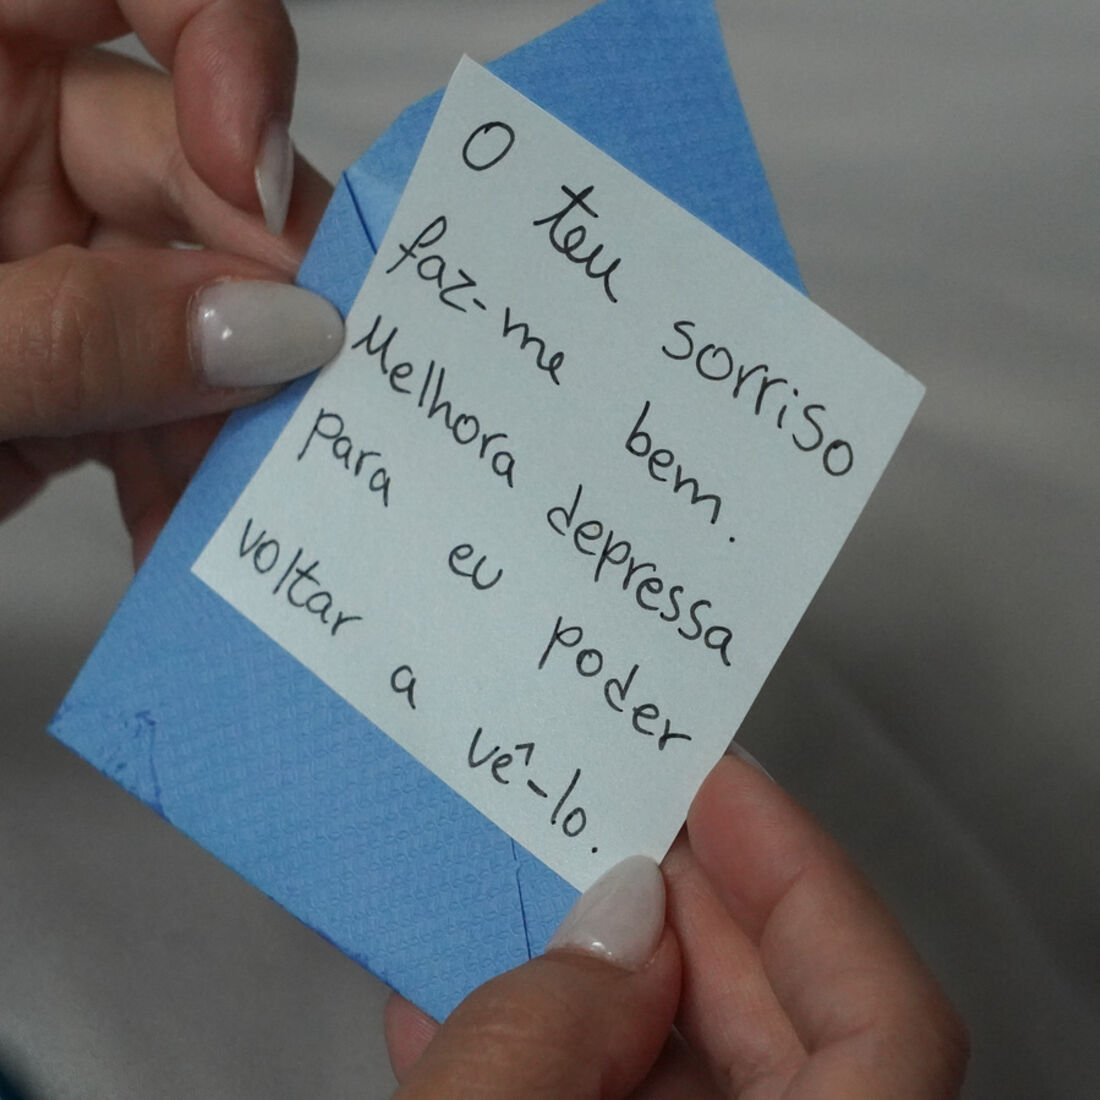 O teu sorriso
faz-me bem.
Melhora depressa
para eu poder
voltar a vê-lo.